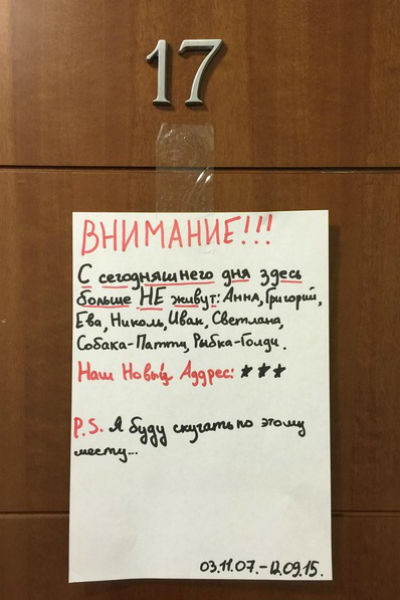 17
ВНИМАНИЕ!!!
С сегодняшнего дня здесь
больше НЕ живут: Анна, Григорий,
Ева, Николь, Иван, Светлана,
Собака-Патти, Рыбка-Голди.
Наш Новый Аддрес: ***
P.S. Я буду скучать по этому
месту...
03.11.07.-12.09.15.